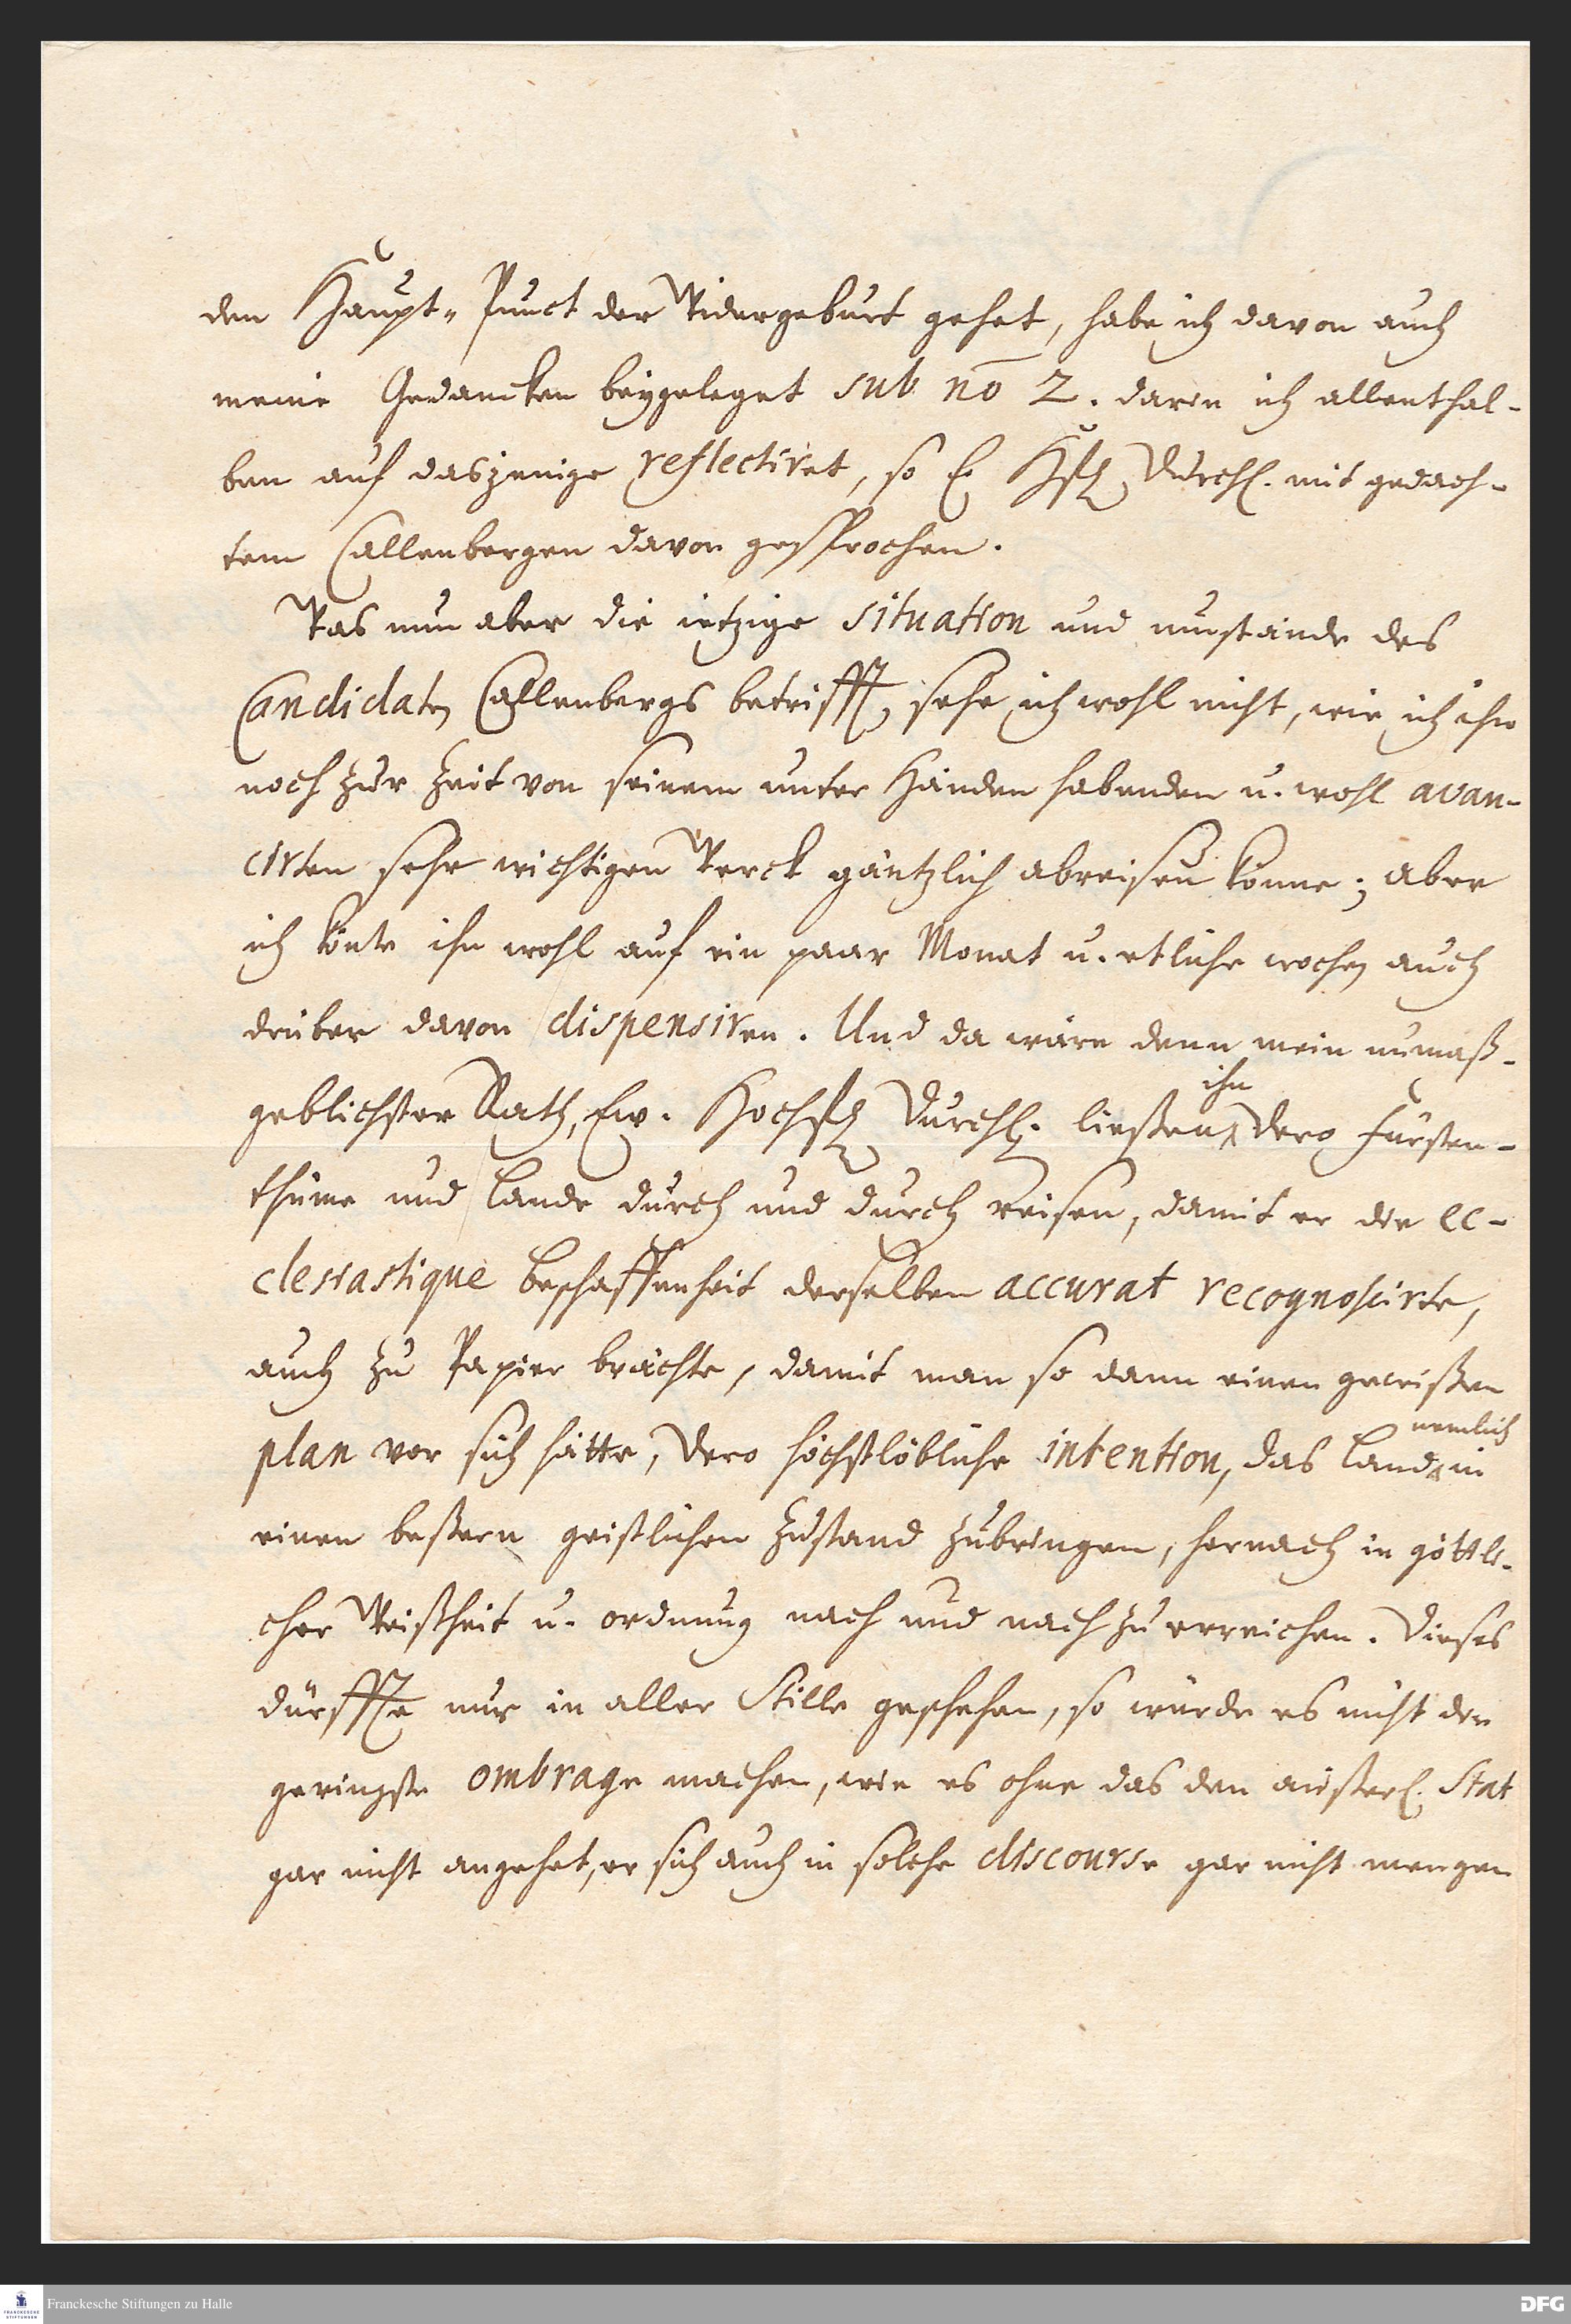 den Haupt-Punct der Widergeburt gehet, habe ich davon auch
meine Gedancken beygeleget sub no 2. darin ich allenthal-
ben auf dasjenige reflectiret, so E. Hfl. Durchl. mit gedach-
tem Callenbergen davon gesprochen.
Was nun aber die ietzige situation und umstände des
Candidaten Callenbergs betrifft, sehe ich wohl nicht, wie ich ihn
noch zur Zeit von seinem unter Händen habenden u. wohl avan-
cirten sehr wichtigen Werck gäntzlich abreißen könne; aber
ich könte ihn wohl auf ein paar Monat u. etliche wochen auch
drüber davon dispensiren. Und da wäre denn mein unmaß-
ihn
geblichster Rath, Ew. Hochfl. Durchl. ließen dero Fürsten-
thüme und Lande durch und durch reisen, damit er die ec-
clesiastique Beschaffenheit derselben accurat recognoscirte,
auch zu Papier brächte, damit man so dann einen gewißen
nemlich
plan vor sich hätte, Dero höchstlöbliche intention, das Land in
einen beßern geistlichen Zustand zubringen, hernach in göttli-
cher Weißheit u. ordnung nach und nach zu erreichen. Dieses
dürffte nur in aller Stille geschehen, so würde es nicht den
geringste ombrage machen, wie es ohne das den äußerl. Stat
gar nicht angehet, er sich auch in solche discourse gar nicht mengen
Franckesche Stiftungen zu Halle
FRANCKESCHE STIFTUNGEN
DFG